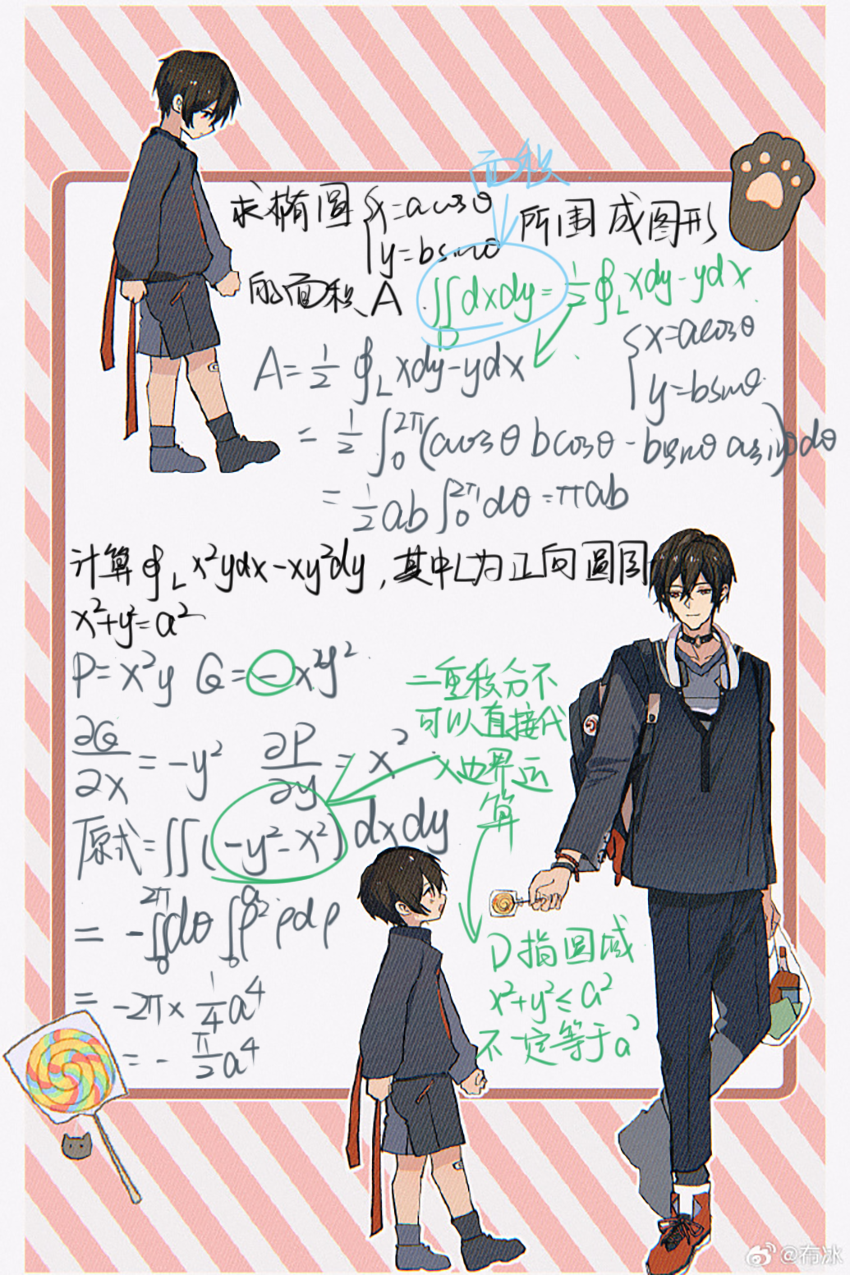 面积
求椭圆 {x=acosθ 所围成图形
{y=bsinθ
的面积A ∬_D dxdy=½∮_L xdy-ydx
A=½∮_L xdy-ydx {x=acosθ
{y=bsinθ
=½∫_0^{2π}(acosθ bcosθ-bsinθ asinθ)dθ
=½ab∫_0^{2π}dθ=πab
计算∮_L x²ydx-xy²dy,其中L为正向圆周
x²+y²=a²
P=x²y Q=-x²y²
∂Q/∂x=-y² ∂P/∂y=x²
原式=∬(-y²-x²)dxdy
=-∫_0^{2π}dθ∫_0^a ρ²ρdρ
=-2π×¼a⁴
=-π/2 a⁴
二重积分不
可以直接代
入边界运
算
D指圆域
x²+y²≤a²
不一定等于a²
@布冰